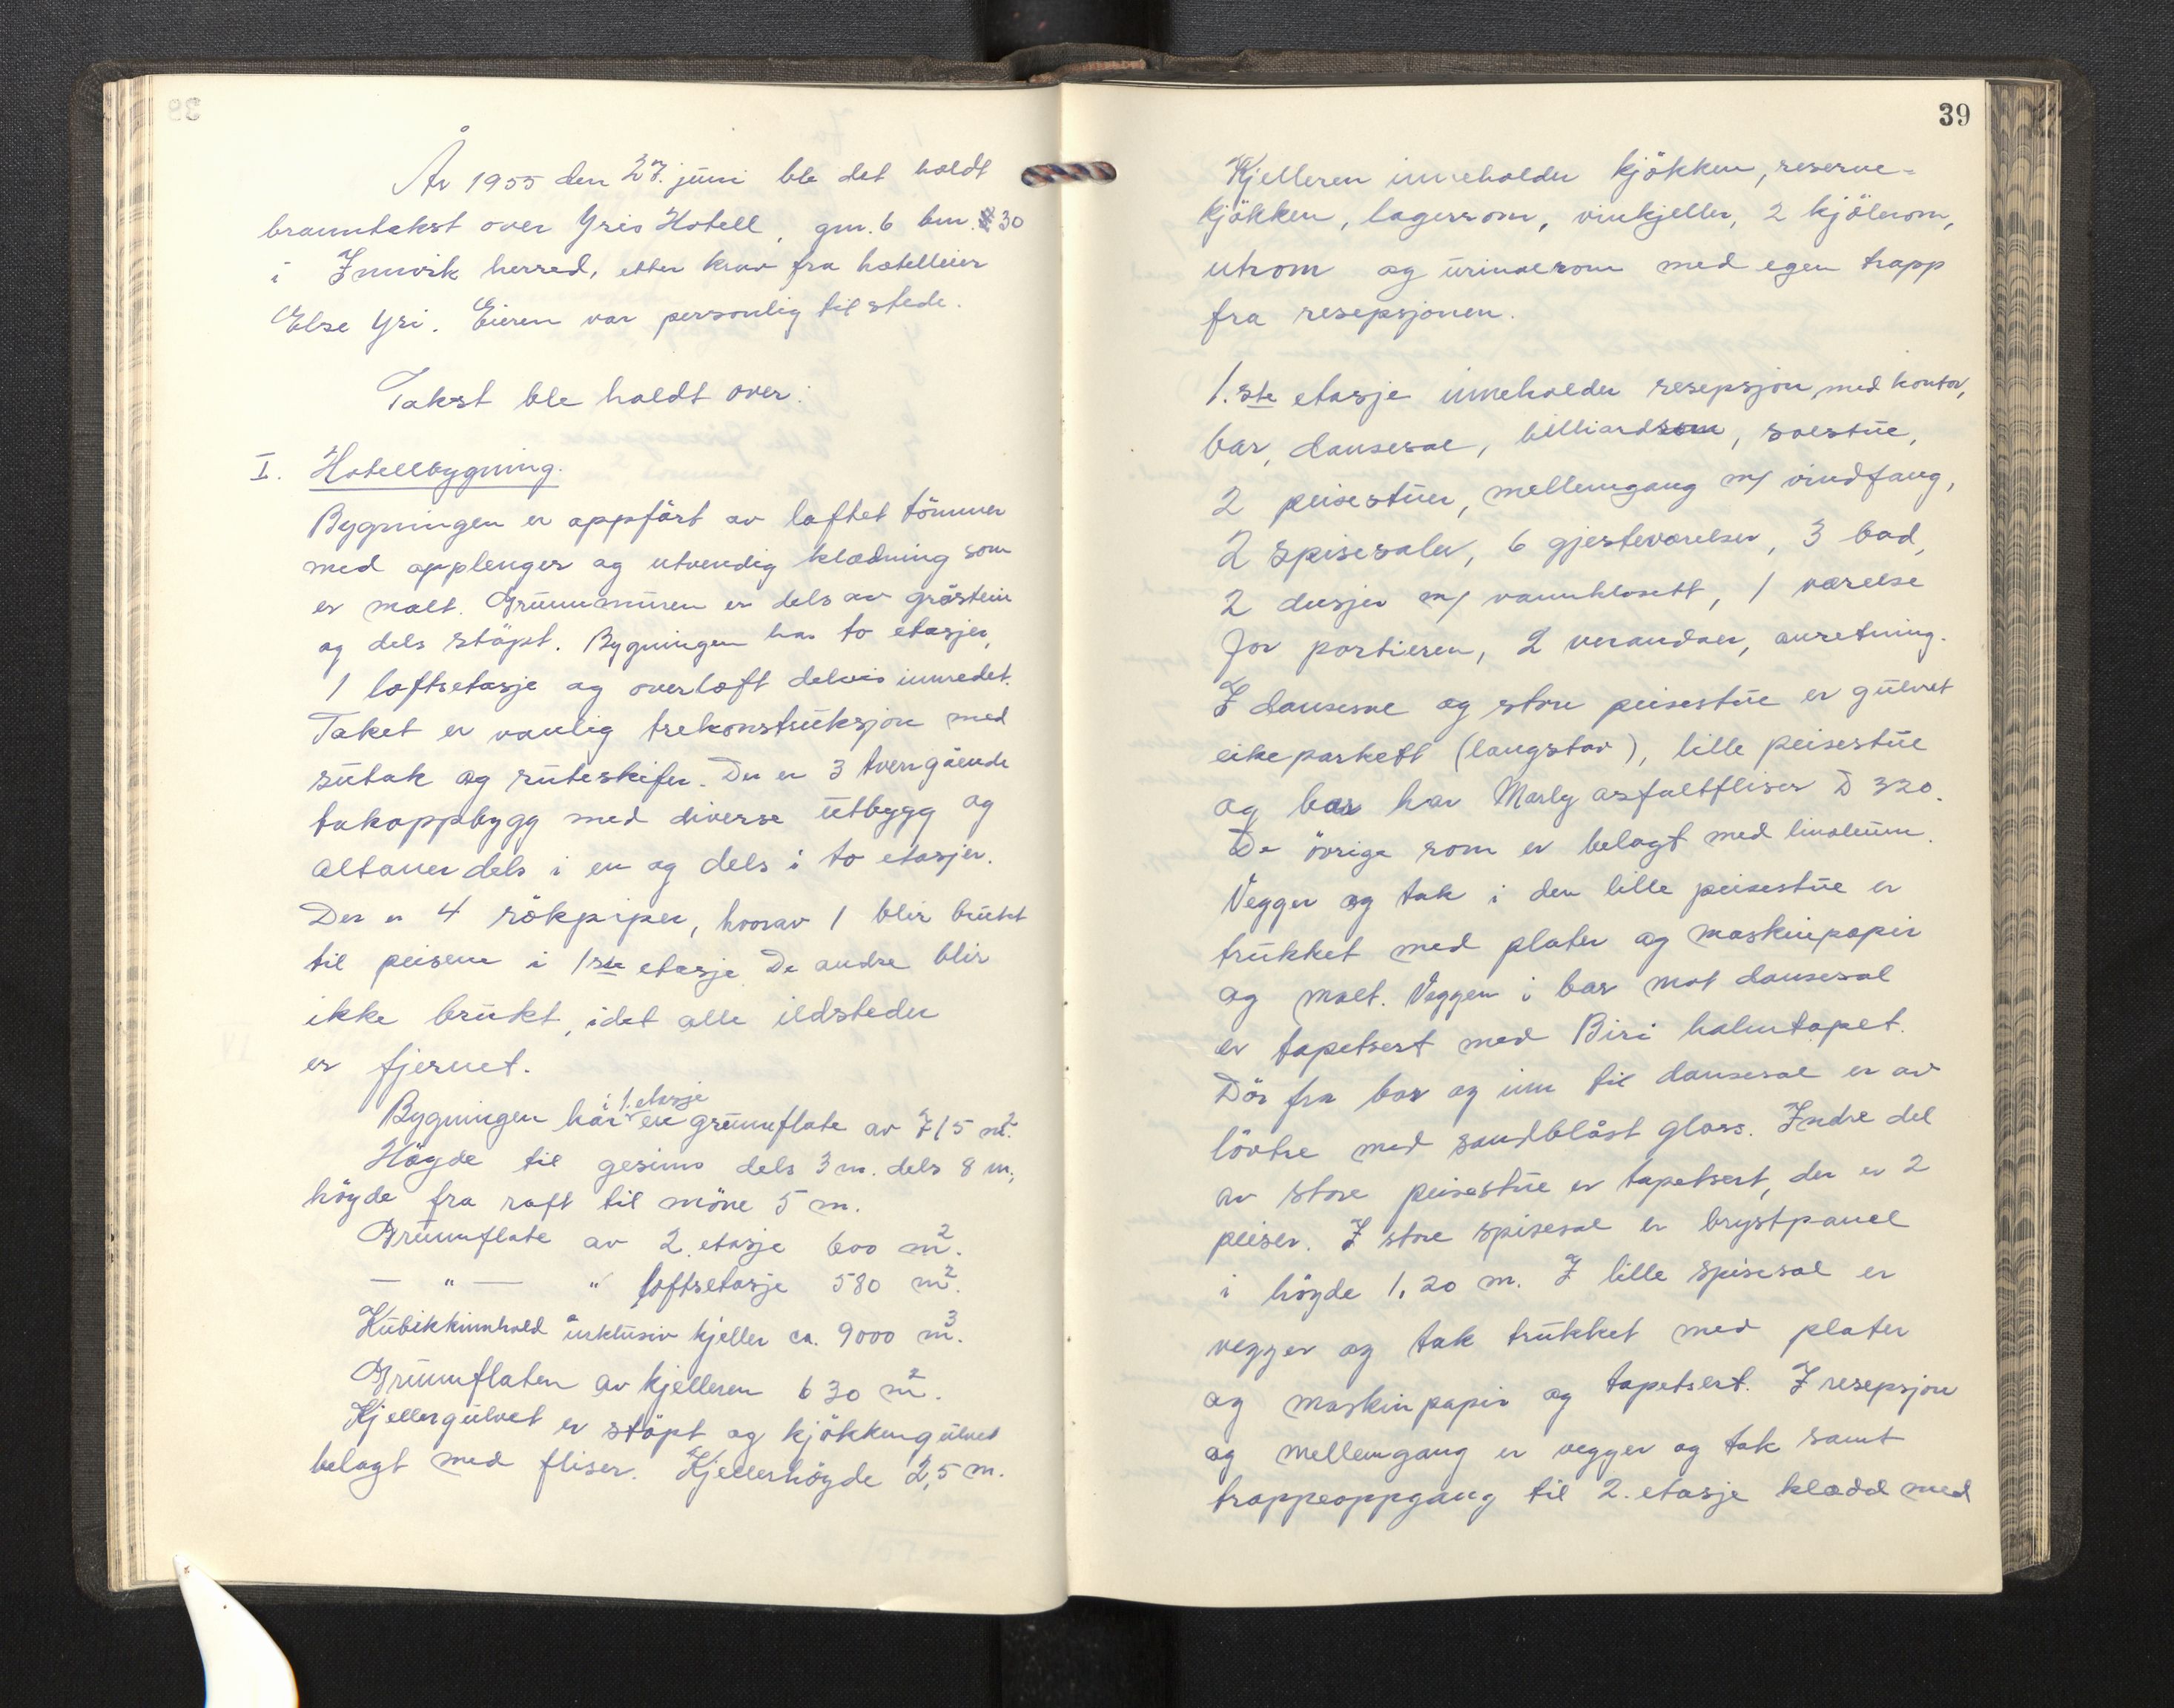 År 1955 den 27. juni ble det holdt
branntakst over Yris Hotell, gnr. 6 bnr. 30
i Innvik herred, etter krav fra hotelleier
Else Yri. Eieren var personlig til stede.
Takst ble holdt over:
I. Hotellbygning.
Bygningen er oppført av laftet tömmer
med opplenger og utvendig klædning som
er malt. Grunnmuren er dels av gråstein
og dels stöpt. Bygningen har to etasjer,
1 loftsetasje og overloft delvis innredet.
Taket er vanlig trekonstruksjon med
sutak og ruteskifer. Der er 3 tverrgående
takoppbygg med diverse utbygg og
altaner dels i en og dels i to etasjer.
Der er 4 rökpiper, hvorav 1 blir brukt
til peisene i 1ste etasje. De andre blir
ikke brukt, idet alle ildsteder
er fjernet.
Bygningen har i 1. etasje en grunnflate av 715 m².
Höyde til gesims dels 3 m. dels 8 m,
höyde fra raft til möne 5 m.
Grunnflate av 2. etasje 600 m².
— " — " loftsetasje 580 m².
Kubikkinnhold inklusiv kjeller ca. 9000 m³.
Grunnflaten av kjelleren 630 m².
Kjellergulvet er stöpt og kjökkengulvet
belagt med fliser. Kjellerhöyde 2,5 m.
39
Kjelleren inneholder kjökken, reserve-
kjökken, lagerrom, vinkjeller, 2 kjölerom,
utrom og urinalrom med egen trapp
fra resepsjonen.
1.ste etasje inneholder resepsjon, med kontor,
bar, dansesal, billiardrom, solstue,
2 peisestuer, mellemgang m/ vindfang,
2 spisesaler, 6 gjesteværelser, 3 bad,
2 dusjer m/ vannklosett, 1 værelse
for portieren, 2 verandaer, anretning.
I dansesal og store peisestue er gulvet
eikeparkett (langstav), lille peisestue
og bar har Marly asfaltfliser D 320.
De övrige rom er belagt med linoleum.
Vegger og tak i den lille peisestue er
trukket med plater og maskinpapir
og malt. Veggen i bar mot dansesal
er tapetsert med Biri halmtapet.
Dör fra bar og inn til dansesal er av
lövtre med sandblåst glass. Indre del
av store peisestue er tapetsert, der er 2
peiser. I store spisesal er brystpanel
i höyde 1,20 m. I lille spisesal er
vegger og tak trukket med plater
og maskinpapir og tapetsert. I resepsjon
og mellemgang er vegger og tak samt
trappeoppgang til 2. etasje klædd med